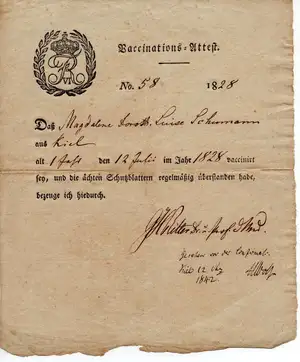 Vaccinations-Attest.
No. 58 1828
Daß Magdalene Doroth. Luise Schumann
aus Kiel
alt 1 Jahr den 12 Julii im Jahr 1828 vaccinirt
sey, und die ächten Schutzblattern regelmäßig überstanden habe,
bezeuge ich hiedurch.
Ritter Dr. u. Prof. d. Med.
Gesehen vor der
Kiel 12
1842